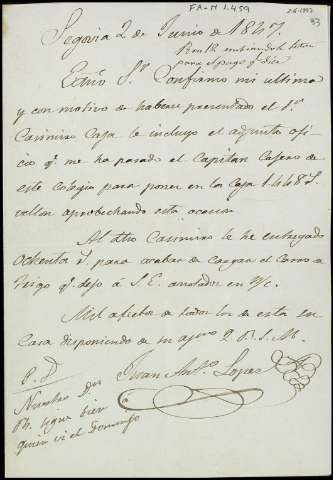 FA-M 1.459
93
Segovia 2 de Junio de 1847.
Exmo Sr. Confirmo mi ultima
y con motivo de haberse presentado el Sr.
Casimiro Casa le incluyo el adjunto ofi
cio q.e me ha pasado el Capitan Cajero de
este colegio para poner en la Caja 1.448 rs.
vellon aprobechando esta ocasion
Al dho Casimiro le he entregado
ochenta rs. para acabar de cargar el carro de
trigo q.e dejo á S. E. anotados en n/c.
Mil afectos de todos los de esta su
Casa disponiendo de su aftmo Q. B. S. M.
Juan Anto. Lopez
P. D.
Nuestro Dn
sigue bien
quien vi el Domingo